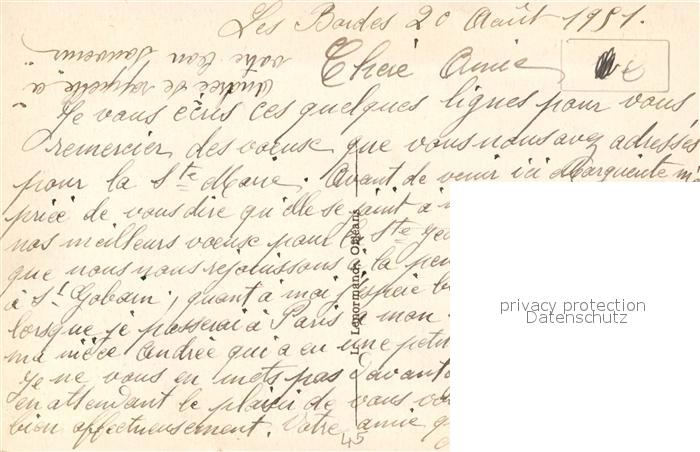 Les Bordes 20 Août 1951.
Chère Amie
Je vous écris ces quelques lignes pour vous
remercier des voeux que vous nous avez adressés
pour la Ste Marie. Avant de venir ici Marguerite m'
priée de vous dire qu'elle se joint à
nos meilleurs voeux pour la Ste
que nous nous rejouissons à la
à St Gobain; quant à moi, j'espère
lorsque je passerai à Paris a mon
ma nièce Andrée qui a eu une
Je ne vous en mets pas
en attendant le plaisir de vous
bien affectueusement. Votre amie
Andrée se rappelle à
votre bon souvenir
L. Lenormand, Orléans
45
privacy protection
Datenschutz